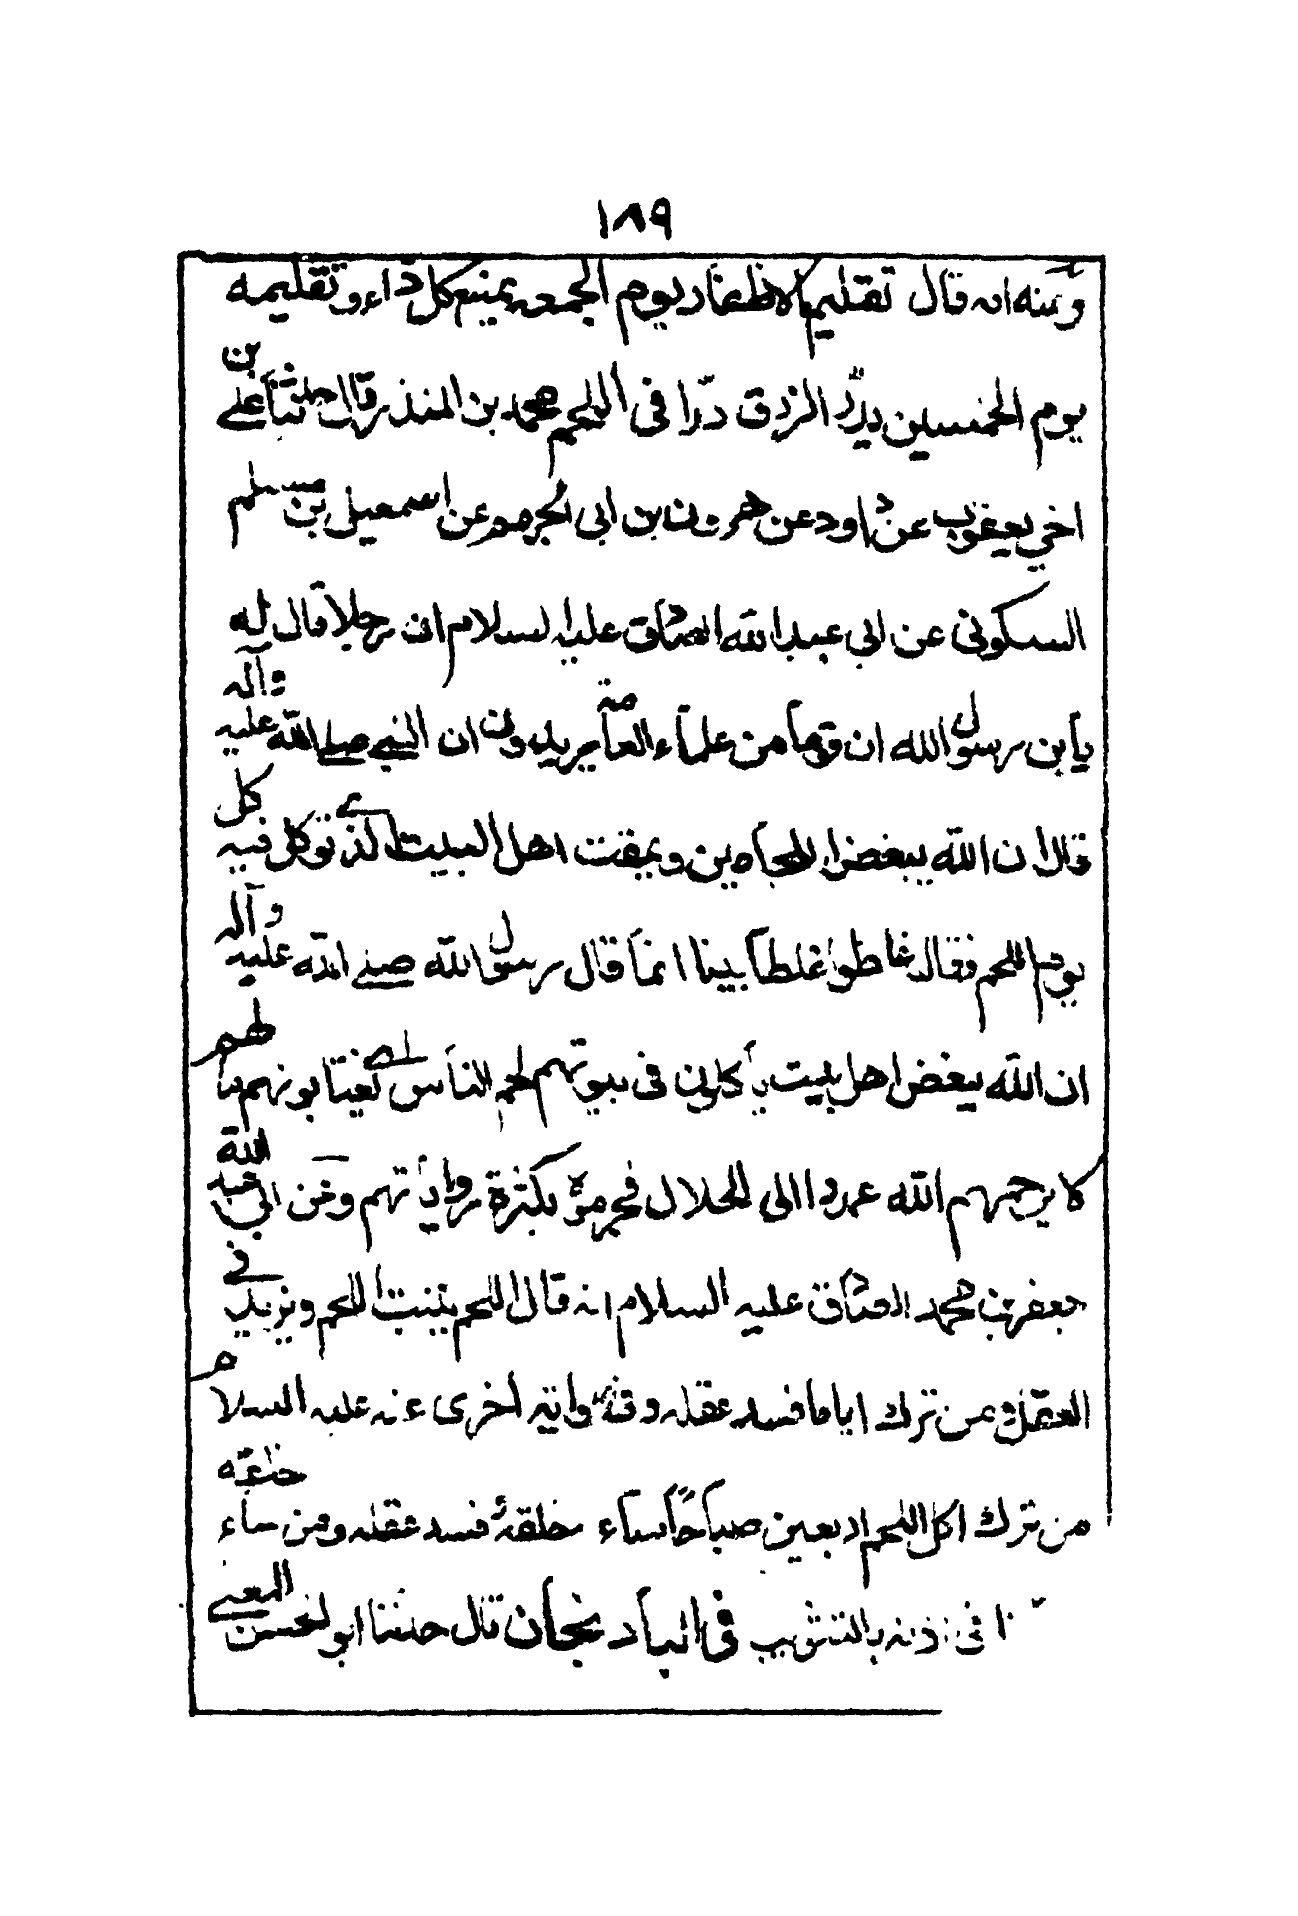 ١٨٩
وعنه انه قال تقليم الاظفار يوم الجمعه يمنع كل داء وتقليمه
يوم الخميس يدر الرزق درا في اللحم محمد بن المنذر قال حدثنا علي بن
اخي يعقوب عن داود عن هرون بن ابي الجهم عن اسمعيل بن مسلم
السكوني عن ابي عبد الله الصادق عليه السلام ان رجلا قال له
يا بن رسول الله ان قوما من علماء العامة يروون ان النبي صلى الله عليه وآله
قال ان الله يبغض اللحامين ويمقت اهل البيت الذي توكل فيه كل
يوم اللحم فقال غلطوا غلطا بينا انما قال رسول الله صلى الله عليه وآله
ان الله يبغض اهل بيت يأكلون في بيوتهم لحم الناس اي يغتابونهم ما لهم
لا يرحمهم الله عمدوا الى الحلال فحرموه بكثرة رواياتهم وعن ابي عبد الله
جعفر بن محمد الصادق عليه السلام انه قال اللحم ينبت اللحم ويزيد في
العقل ومن ترك اياما فسد عقله وفي رواية اخرى عنه عليه السلام
من ترك اكل اللحم اربعين صباحا ساء خلقه وفسد عقله ومن ساء خلقه
فاذنوا في اذنه بالتثويب في الباذنجان قال حدثنا ابو الحسن المعلى